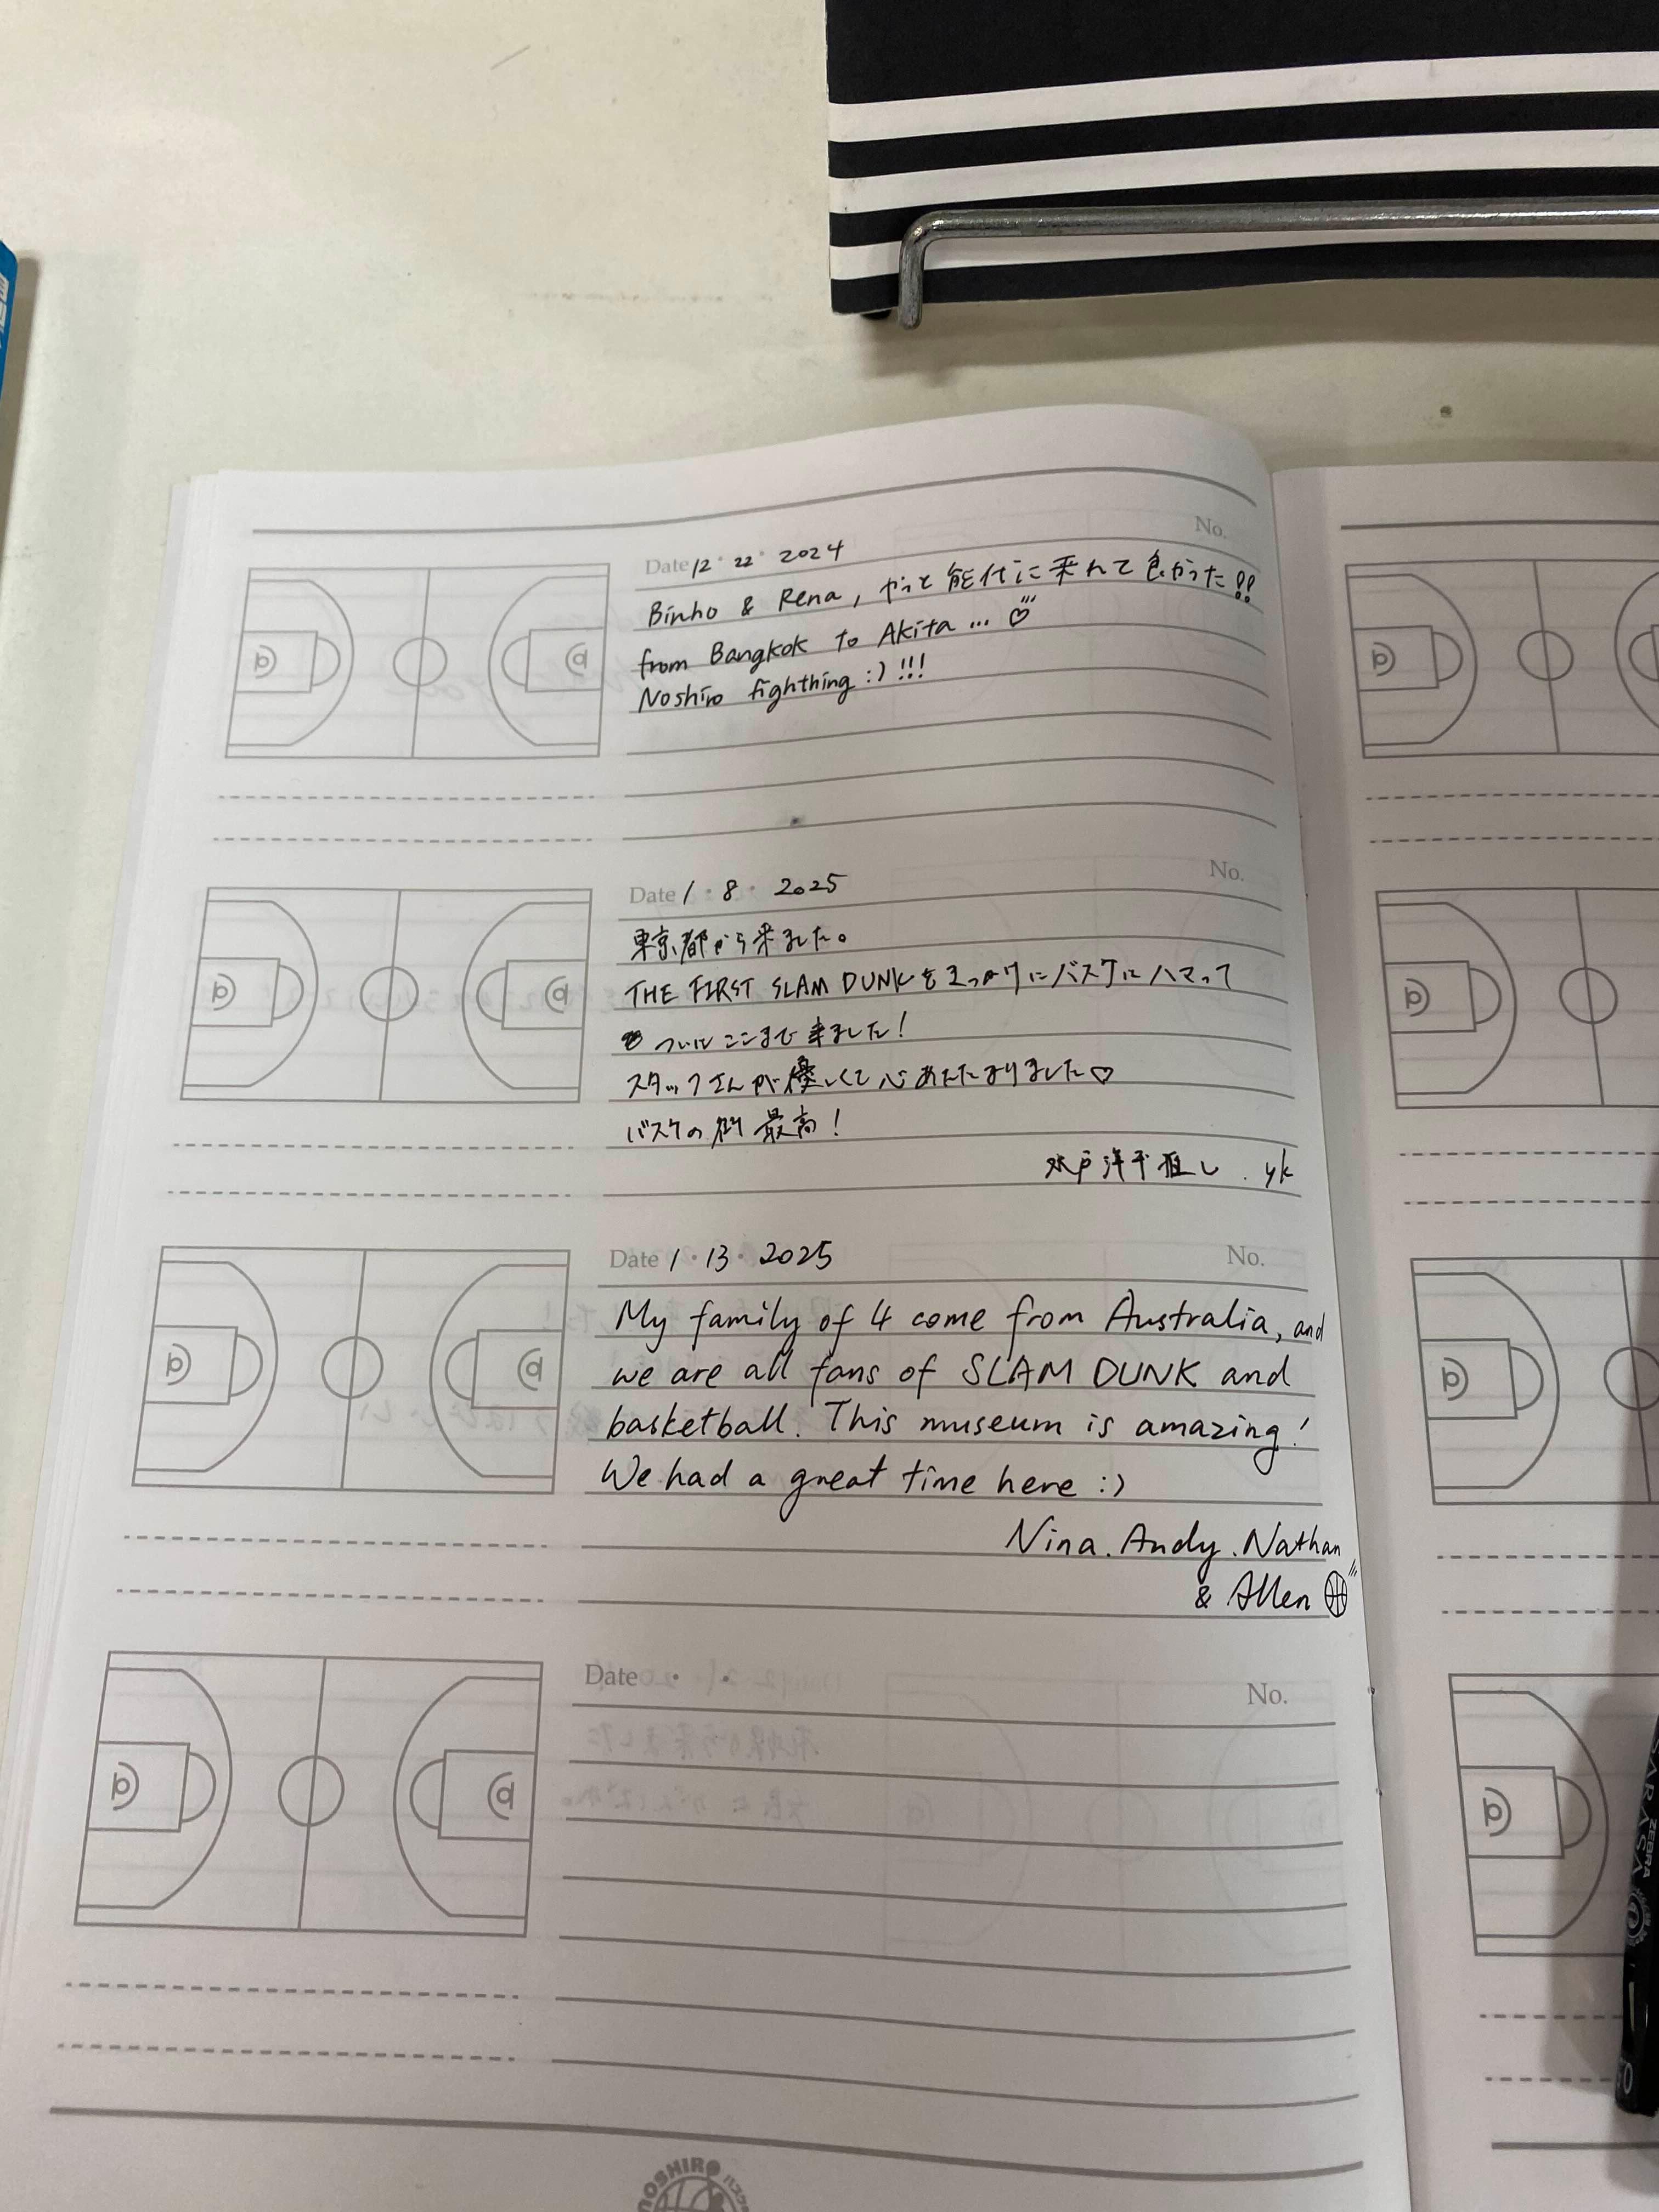 No.
Date 12・22・2024
Binho & Rena, やっと能代に来れて良かった!!
from Bangkok to Akita ... ♡
Noshiro fighthing :) !!!
No.
Date 1・8・2025
東京都から来ました。
THE FIRST SLAM DUNKをきっかけにバスケにハマって
ついにここまで来ました!
スタッフさんが優しくて心あたたまりました♡
バスケの街 最高!
水戸洋平推し. yk
Date 1・13・2025 No.
My family of 4 come from Australia, and
we are all fans of SLAM DUNK and
basketball. This museum is amazing!
We had a great time here :)
Nina. Andy. Nathan
& Allen
Date ・ ・
No.
NOSHIRO
ZEBRA
SARASA